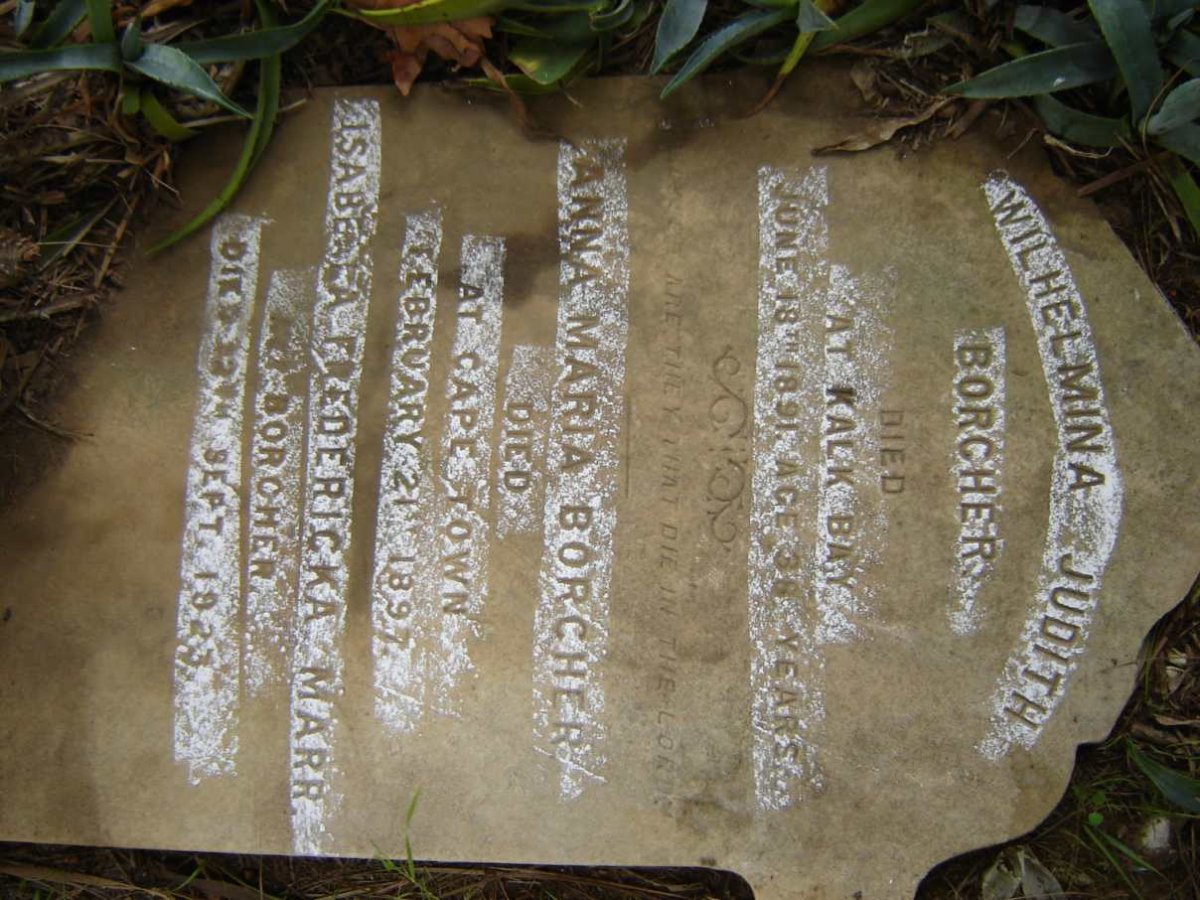 WILHELMINA JUDITH
BORCHER
DIED
AT KALK BAY
JUNE 18TH 1891 AGE 36 YEARS
ARE THEY THAT DIE IN THE LORD
ANNA MARIA BORCHER
DIED
AT CAPE TOWN
FEBRUARY 21ST 1897
ISABELLA FREDERICKA MARR
BORCHER
DIED SEPT